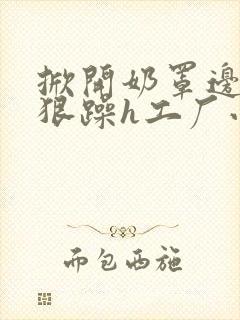 掀開奶罩邊
狠躁h工厂
而包西施